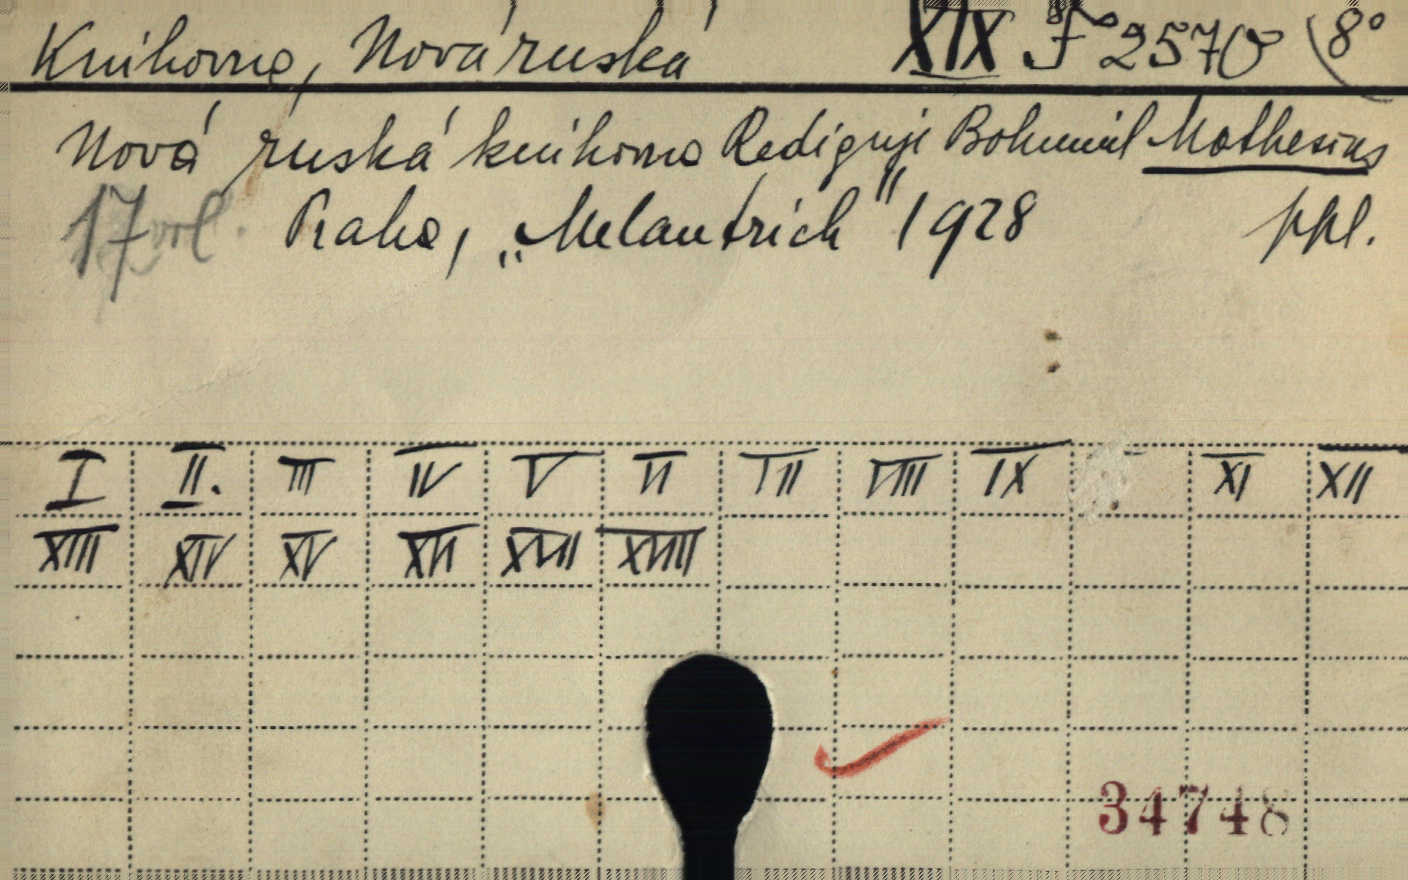 Knihovna, Nová ruská XIX F 2570 (8°
Nová ruská knihovna Rediguje Bohumil Mathesius
17 vol. Praha, „Melantrich" 1928 ppl.
I II. III IV V VI VII VIII IX XI XII
XIII XIV XV XVI XVII XVIII
34748